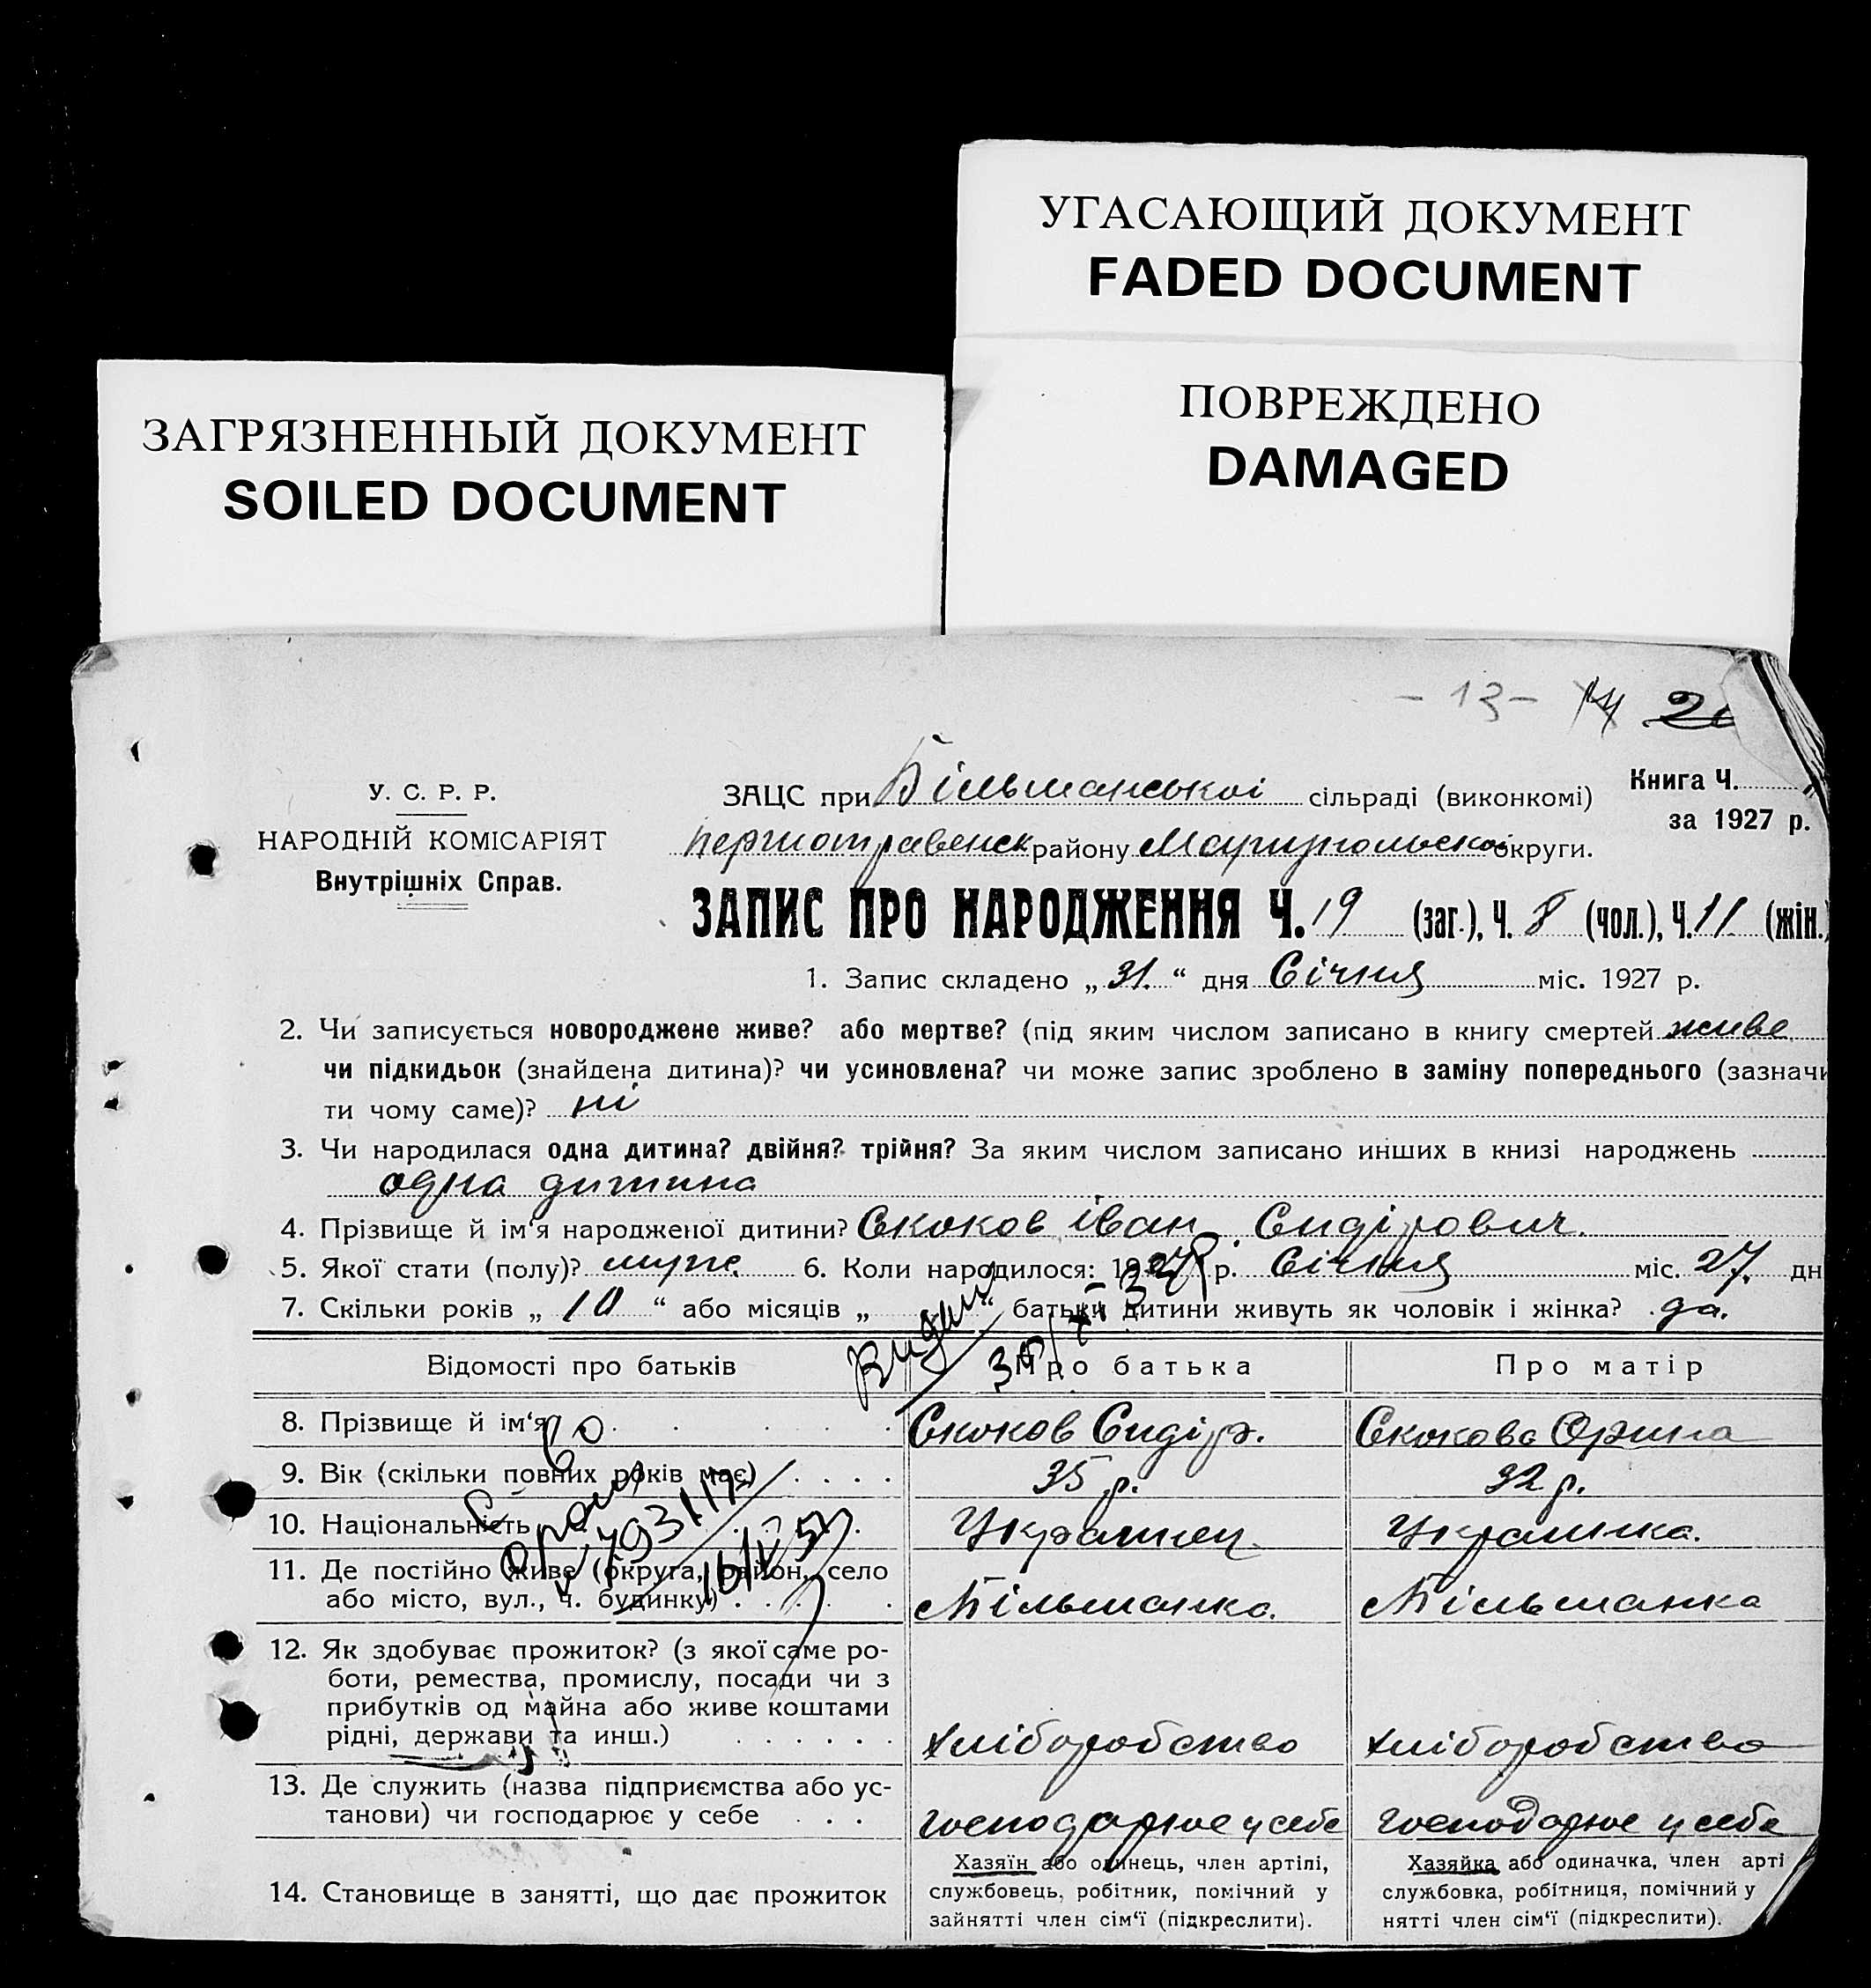 УГАСАЮЩИЙ ДОКУМЕНТ
FADED DOCUMENT
ПОВРЕЖДЕНО
DAMAGED
ЗАГРЯЗНЕННЫЙ ДОКУМЕНТ
SOILED DOCUMENT
- 13 -
У. С. Р. Р.
НАРОДНІЙ КОМІСАРІЯТ
Внутрішніх Справ.
ЗАЦС при Більманської сільраді (виконкомі)
Книга Ч.
за 1927 р.
першотравенск району Мариупольскої округи.
ЗАПИС ПРО НАРОДЖЕННЯ Ч. 19 (заг.), Ч. 8 (чол.), Ч. 11 (жін.)
1. Запис складено „ 31. “ дня Січня міс. 1927 р.
2. Чи записується новороджене живе? або мертве? (під яким числом записано в книгу смертей живе
чи підкидьок (знайдена дитина)? чи усиновлена? чи може запис зроблено в заміну попереднього (зазначи
ти чому саме)? ні
3. Чи народилася одна дитина? двійня? трійня? За яким числом записано инших в книзі народжень
одна дитина
4. Прізвище й ім‘я народженої дитини? Скоков Іван Сидірович.
5. Якої стати (полу)? муж. 6. Коли народилося: 1927 р. Січня міс. 27. дн
7. Скільки років „ 10 “ або місяців „ “ батьки дитини живуть як чоловік і жінка? да.
Відомості про батьків
Про батька
Про матір
8. Прізвище й ім‘я
Скоков Сидір.
Скокова Орина
9. Вік (скільки повних років має)
35 р.
32 р.
10. Національність
Украинец
Украинка.
11. Де постійно живе (округа, район, село
або місто, вул., ч. будинку)
Більманка.
Більманка
12. Як здобуває прожиток? (з якої саме ро-
боти, ремества, промислу, посади чи з
прибутків од майна або живе коштами
рідні, держави та инш.)
хліборобство
хліборобство
13. Де служить (назва підприємства або ус-
танови) чи господарює у себе
господарює у себе
господарює у себе
14. Становище в занятті, що дає прожиток
Хазяїн або одинець, член артілі,
службовець, робітник, помічний у
зайнятті член сім‘ї (підкреслити).
Хазяйка або одиначка, член арті
службовка, робітниця, помічний у
нятті член сім‘ї (підкреслити).